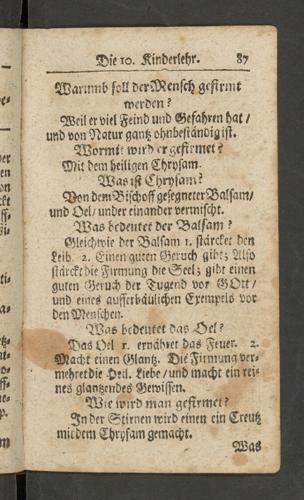 Die 10. Kinderlehr. 87
Warumb soll der Mensch gefirmt
werden?
Weil er viel Feind und Gefahren hat /
und von Natur gantz ohnbeständig ist.
Wormit wird er gefirmet?
Mit dem heiligen Chrysam.
Was ist Chrysam?
Von dem Bischoff gesegneter Balsam /
und Oel / under einander vermischt.
Was bedeutet der Balsam?
Gleichwie der Balsam 1. stärcket den
Leib. 2. Einen guten Geruch gibt; Also
stärckt die Firmung die Seel; gibt einen
guten Geruch der Tugend vor GOtt /
und eines aufferbäulichen Exempels vor
den Menschen.
Was bedeutet das Oel?
Das Oel 1. ernähret das Feuer. 2.
Macht einen Glantz. Die Firmung ver-
mehret die Heil. Liebe / und macht ein rei-
nes glantzendes Gewissen.
Wie wird man gefirmet?
In der Stirnen wird einen ein Creutz
mit dem Chrysam gemacht.
Was